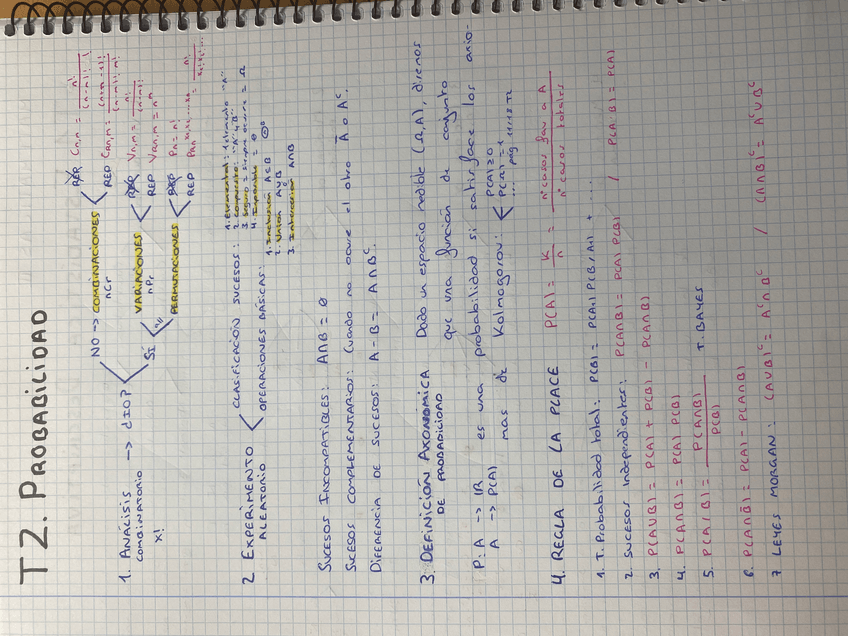 T2. PROBABILIDAD
1. ANÁLISIS COMBINATORIO → ¿IOP?
x!
NO → COMBINACIONES
nCr
REP Cn,n = n! / (n-n)!
REP Cn,n = (n+n-1)! / (n-n)! n!
SÍ
VARIACIONES
nPr
REP Vn,n = n! / (n-n)!
REP VRn,n = nⁿ
"n"
PERMUTACIONES
REP Pn = n!
REP
2 EXPERIMENTO ALEATORIO
CLASIFICACIÓN SUCESOS:
1. Elemental: 1 elemento "A"
2 Compuesto: "A y B"
3 Seguro = siempre ocurre = Ω
4. Imposible = Ø
OPERACIONES BÁSICAS:
1. Inclusión A⊂B
2. Unión A∪B
3. Intersección A∩B
SUCESOS INCOMPATIBLES: A∩B = Ø
SUCESOS COMPLEMENTARIOS: Cuando no ocurre el otro Ā o Aᶜ.
DIFERENCIA DE SUCESOS: A - B = A∩Bᶜ.
3. DEFINICIÓN AXONÓMICA DE PROBABILIDAD
Dado un espacio medible (Ω,A), diremos
que una función de conjunto
P: A → IR
A → P(A)
es una probabilidad si satisface los axio-
mas de Kolmogorov:
P(A)≥0
P(Ω)=1
.... pág 11.18 T2
4. REGLA DE LA PLACE P(A) = K/n = nº casos fav a A / nº casos totales
1. T. Probabilidad total: P(B) = P(A1) P(B/A1) + ....
2. Sucesos independientes: P(A∩B) = P(A) P(B) / P(A/B) = P(A)
3. P(A∪B) = P(A) + P(B) - P(A∩B)
4. P(A∩B) = P(A) P(B)
5. P(A/B) = P(A∩B) / P(B) T. BAYES
6. P(A∩B̄) = P(A) - P(A∩B)
7 LEYES MORGAN: (A∪B)ᶜ = Aᶜ∩Bᶜ / (A∩B)ᶜ = Aᶜ∪Bᶜ